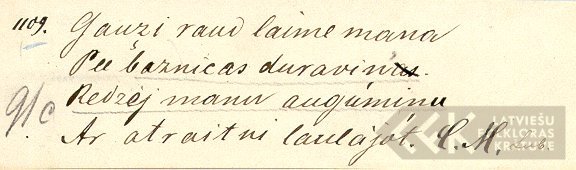 1109. Gauzi raud laime mana
Pee baznicas duravinu.
Redzēj manu augúminu
G/c Ar atraitni laulájot. C. M.
LATVIEŠU
FOLKLORAS
KRĀTUVE